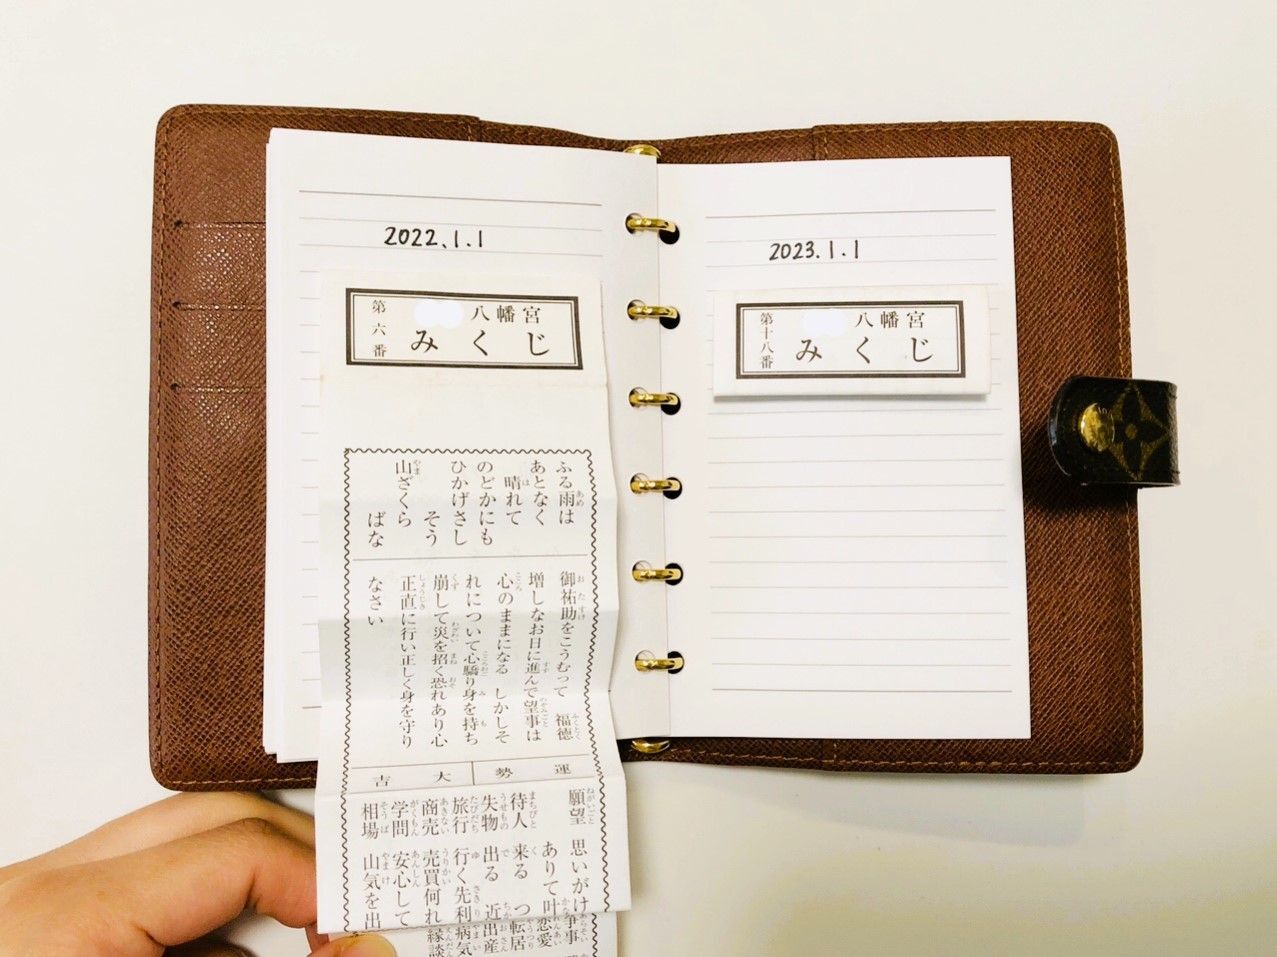 2022.1.1
第六番
八幡宮
みくじ
ふる雨は
あとなく
晴れて
のどかにも
ひかげさし
そう
山ざくら
ばな
御祐助をこうむって 福徳
増しなお日に進んで望事は
心のままになる しかしそ
れについて心驕り身を持ち
崩して災を招く恐れあり心
正直に行い正しく身を守り
なさい
運勢 大吉
願望 思いがけ
ありて叶
待人 来る つ
失物 出る 近
旅行 行く先利
商売 売買何れ
学問 安心して
相場 山気を出
争事
恋愛
転居
出産
病気
縁談
2023.1.1
第十八番
八幡宮
みくじ